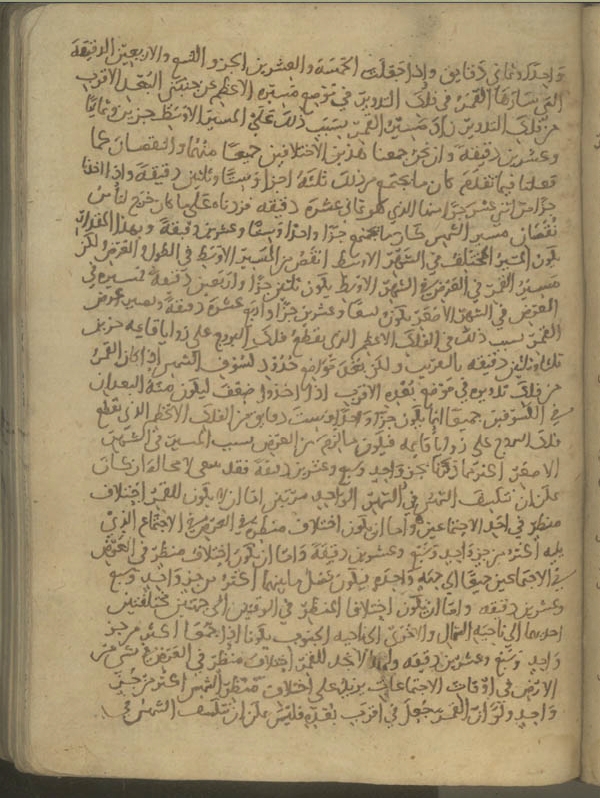 واحد وثماني دقايق واذا جعلت الخمسة والعشرين الجزو والتسع والاربعين الدقيقة
التي يسارها القمر في فلك التدوير في موضع مسيره الاعظم عن جنبتي البعد الاقرب
من فلك التدوير زاد مسير القمر بسبب ذلك علي المسير الاوسط جزين وثمانيا
وعشرين دقيقة وان نحن جمعنا هذين الاختلافين جميعا منهما والنقصان كما
فعلنا فيما تقدم كان ما يجتمع من ذلك ثلثة اجزا وستا وثلثين دقيقة واذا اخذنا
جزا من اثني عشر جزا منها الذي هو ثماني عشرة دقيقه فزدناه علي ما كان خرج لنا من
نقصان مسير الشمس صار ما يجتمع جزا واحدا وستا وعشرين دقيقة وبهذا المقدار
يكون المسير المختلف في الشهر الاوسط انقص من المسير الاوسط في الطول والعرض لكن
مسير القمر في العرض في الشهر الاوسط يكون ثلثين جزا واربعين دقيقة فمسيره في
العرض في الشهر الاصغر يكون تسعا وعشرين جزا واربع عشرة دقيقة ويصير عرض
القمر بسبب ذلك في الفلك الاعظم الذي يقطع فلك البروج علي زوايا قايمه جزين
وثلثا وثلثين دقيقه بالتقريب ولكن تكون مواضع حدود كسوف الشمس اذا كان القمر
من فلك تدويره في موضع بعده الاقرب اذا اخذوا ضعف ليكون منه البعدان
في الكسوفين جميعا انما يكون جزا واحدا وست دقايق من الفلك الاعظم الذي يقطع
فلك البروج علي زوايا قايمه فيكون ما يلزم من العرض بسبب المسير في الشهر
الاصغر اكثر مما ذكرنا بجزو واحد وسبع وعشرين دقيقة فقد ينبغي لا محالة ان كان
يمكن ان تنكسف الشمس في الشهر الواحد مرتين اما ان لا يكون للقمر اختلاف
منظر في احد الاجتماعين واما ان يكون اختلاف منظره في العرض في الاجتماع الذي
يليه اكثر من جزو واحد وسبع وعشرين دقيقة واما ان يكون اختلاف منظر في العرض
في الاجتماعين جميعا الي جهة واحدة ويكون فضل ما بينهما اكثر من جزو واحد وسبع
وعشرين دقيقه واما ان يكون اختلافا المنظر في الوقتين الي جهتين مختلفتين
احدهما الي ناحية الشمال والاخري الي ناحية الجنوب يكونا اذا جمعا اكثر من جزو
واحد وسبع وعشرين دقيقه وليس لاحد للقمر اختلاف منظر في العرض في شي من
الارض في اوقات الاجتماعات يزيد علي اختلاف منظر الشمس اكثر من جزو
واحد ولو ان القمر جعل في اقرب بعده فليس يمكن ان تنكسف الشمس في